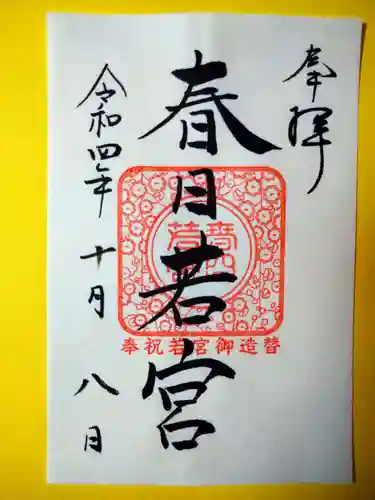 奉拝
春日若宮
奉祝若宮御造替
令和四年十月八日